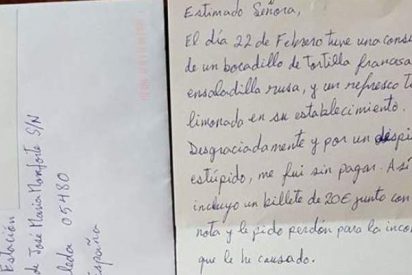 Estación
de José María Monforte S/N
leda 05480
spaña
Estimado Señora,
El día 22 de Febrero tuve una cons
de un bocadillo de Tortilla francesa
ensaladilla rusa, y un refresco t
limonada en su establecimiento.
Desgraciadamente y por un despi
estúpido, me fui sin pagar. Así
incluyo un billete de 20€ junto con
nota y le pido perdón para la inco
que le he causado.